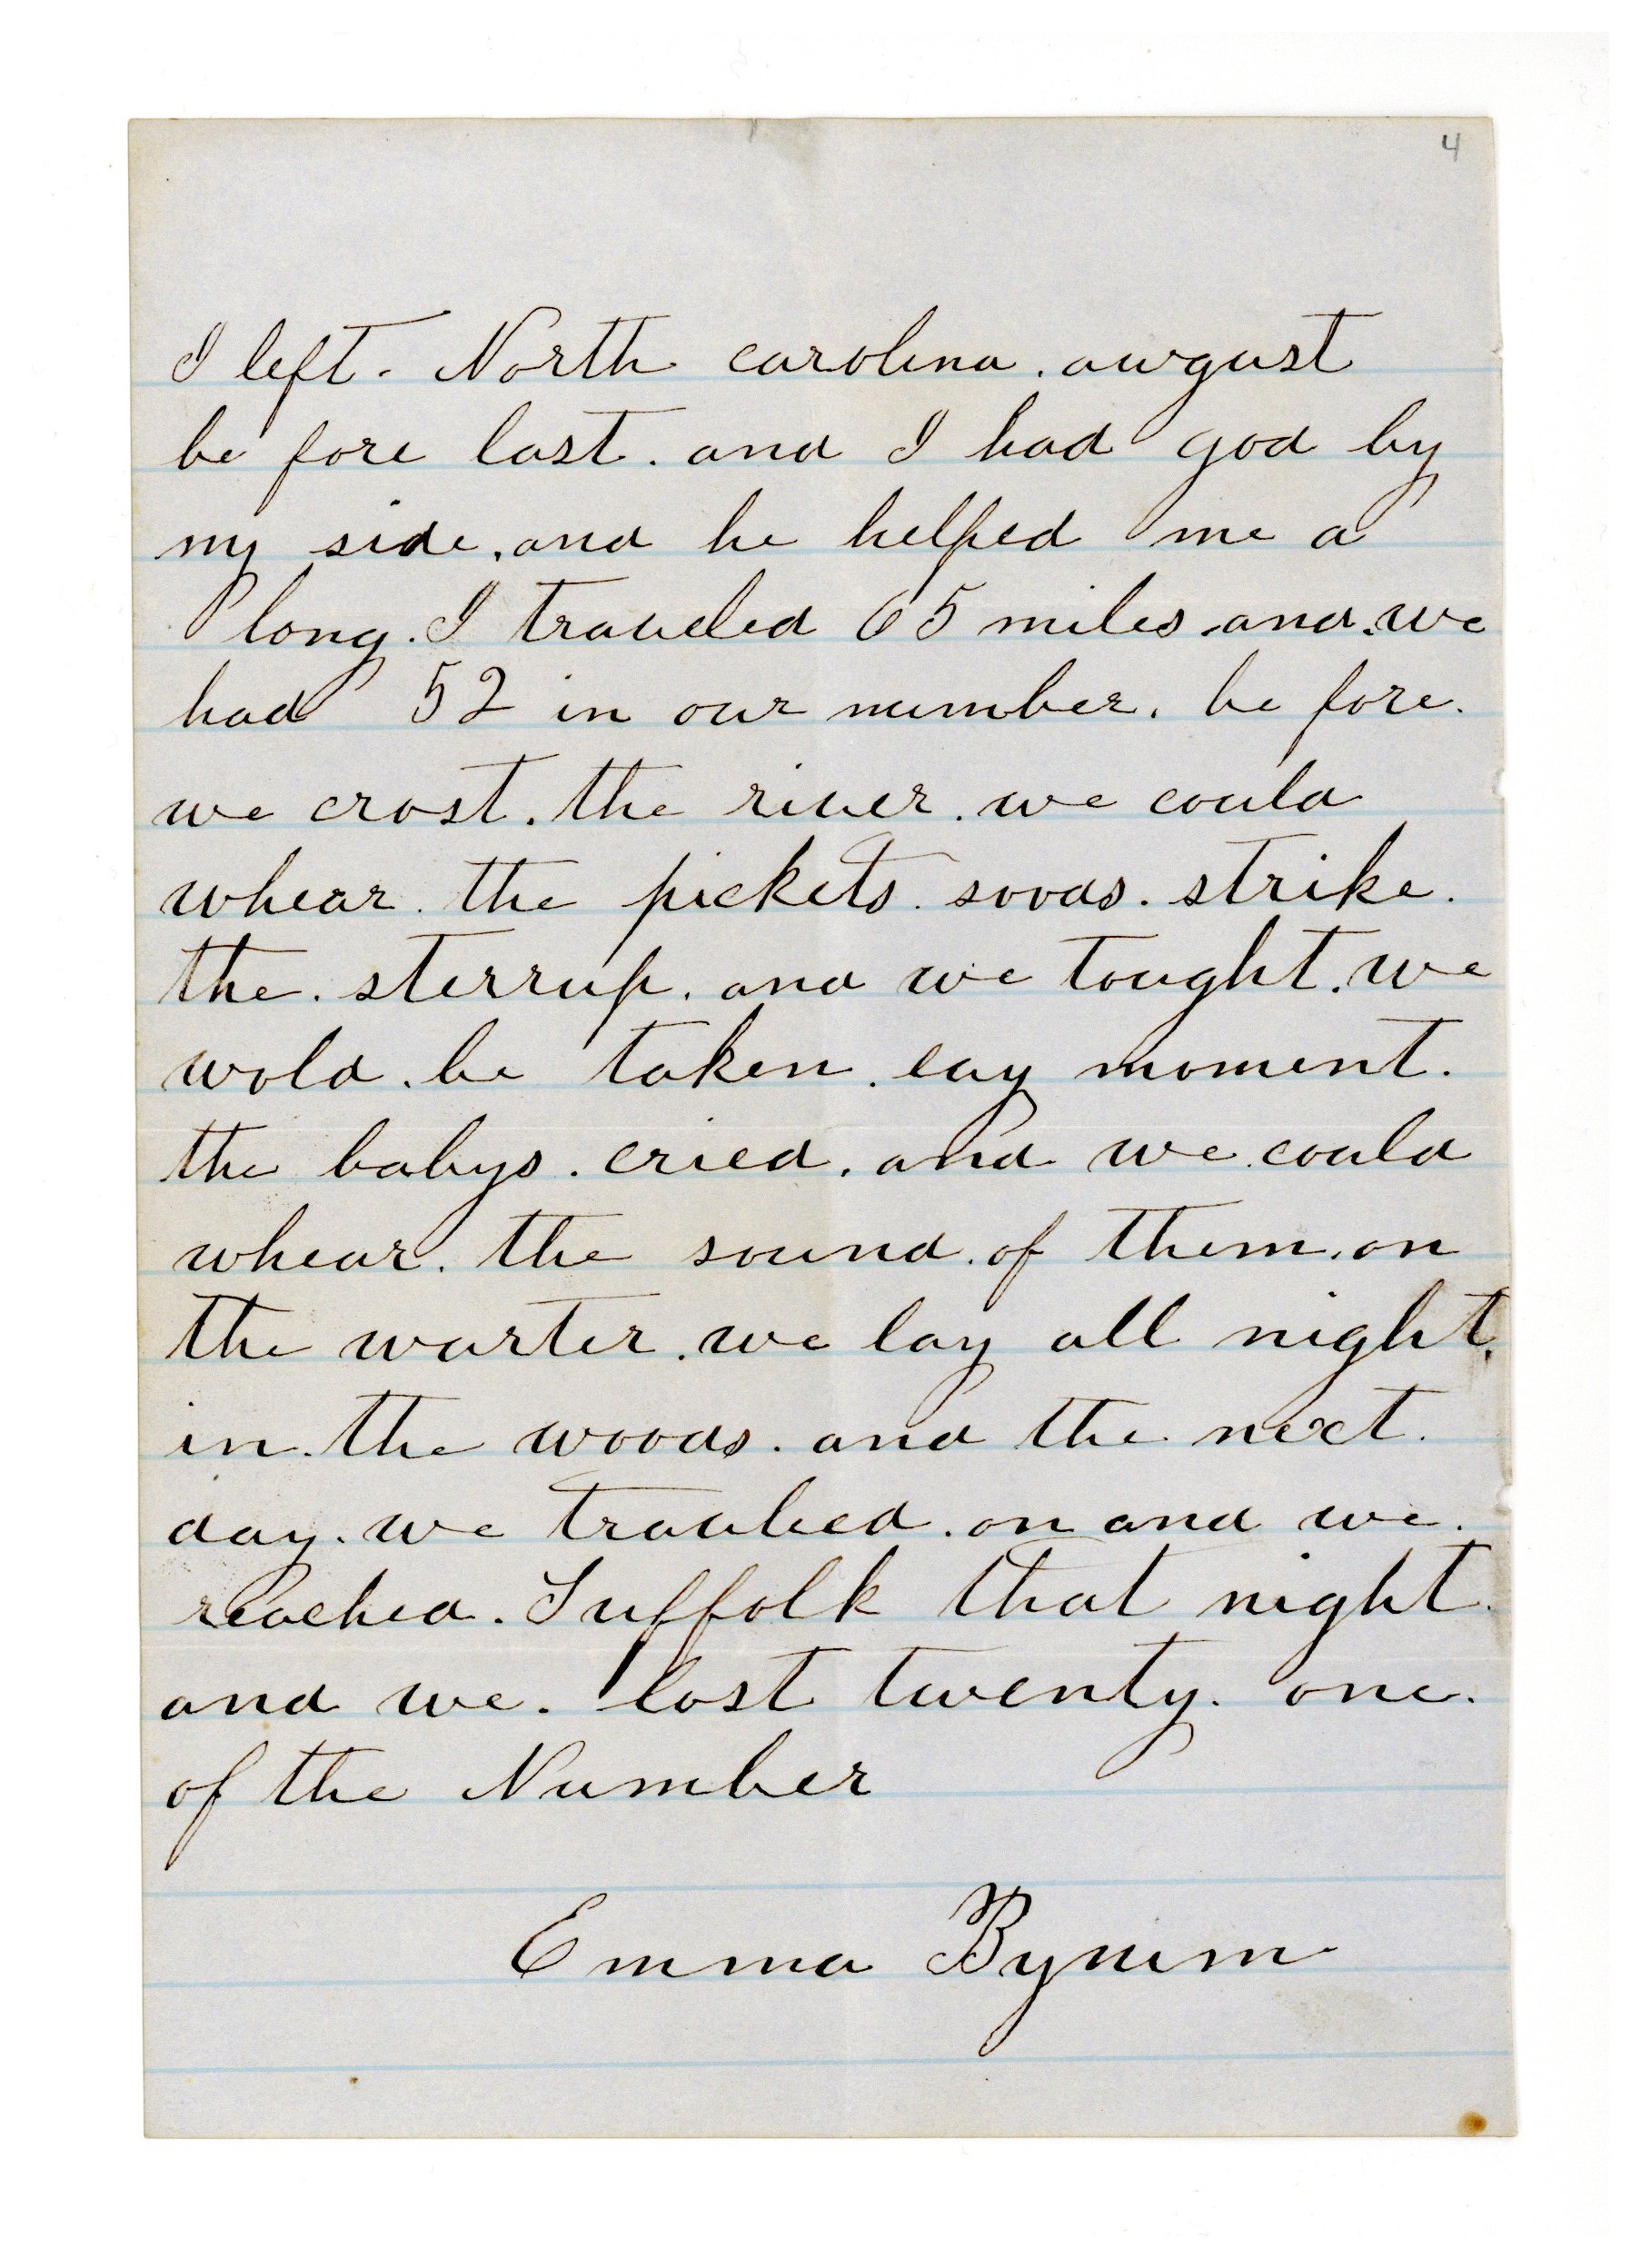 4
I left. North carolina. august
be fore last. and I had god by
my side. and he helped me a
long. I traveled 65 miles. and. we
had 52 in our number. be fore.
we crost. the river. we could
whear. the pickets. soods. strike.
the. sterrup. and we tought. we
wold. be taken. eny moment.
the babys. cried. and we. could
whear. the sound. of them. on
the warter. we lay all night.
in. the woods. and the next.
day. we traveled. on and we.
reached. Suffolk that night.
and we. lost twenty. one.
of the Number
Emma Bynum